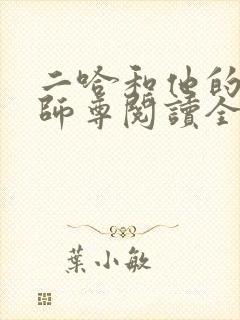 二哈和他的
師尊閱讀全
葉小敏